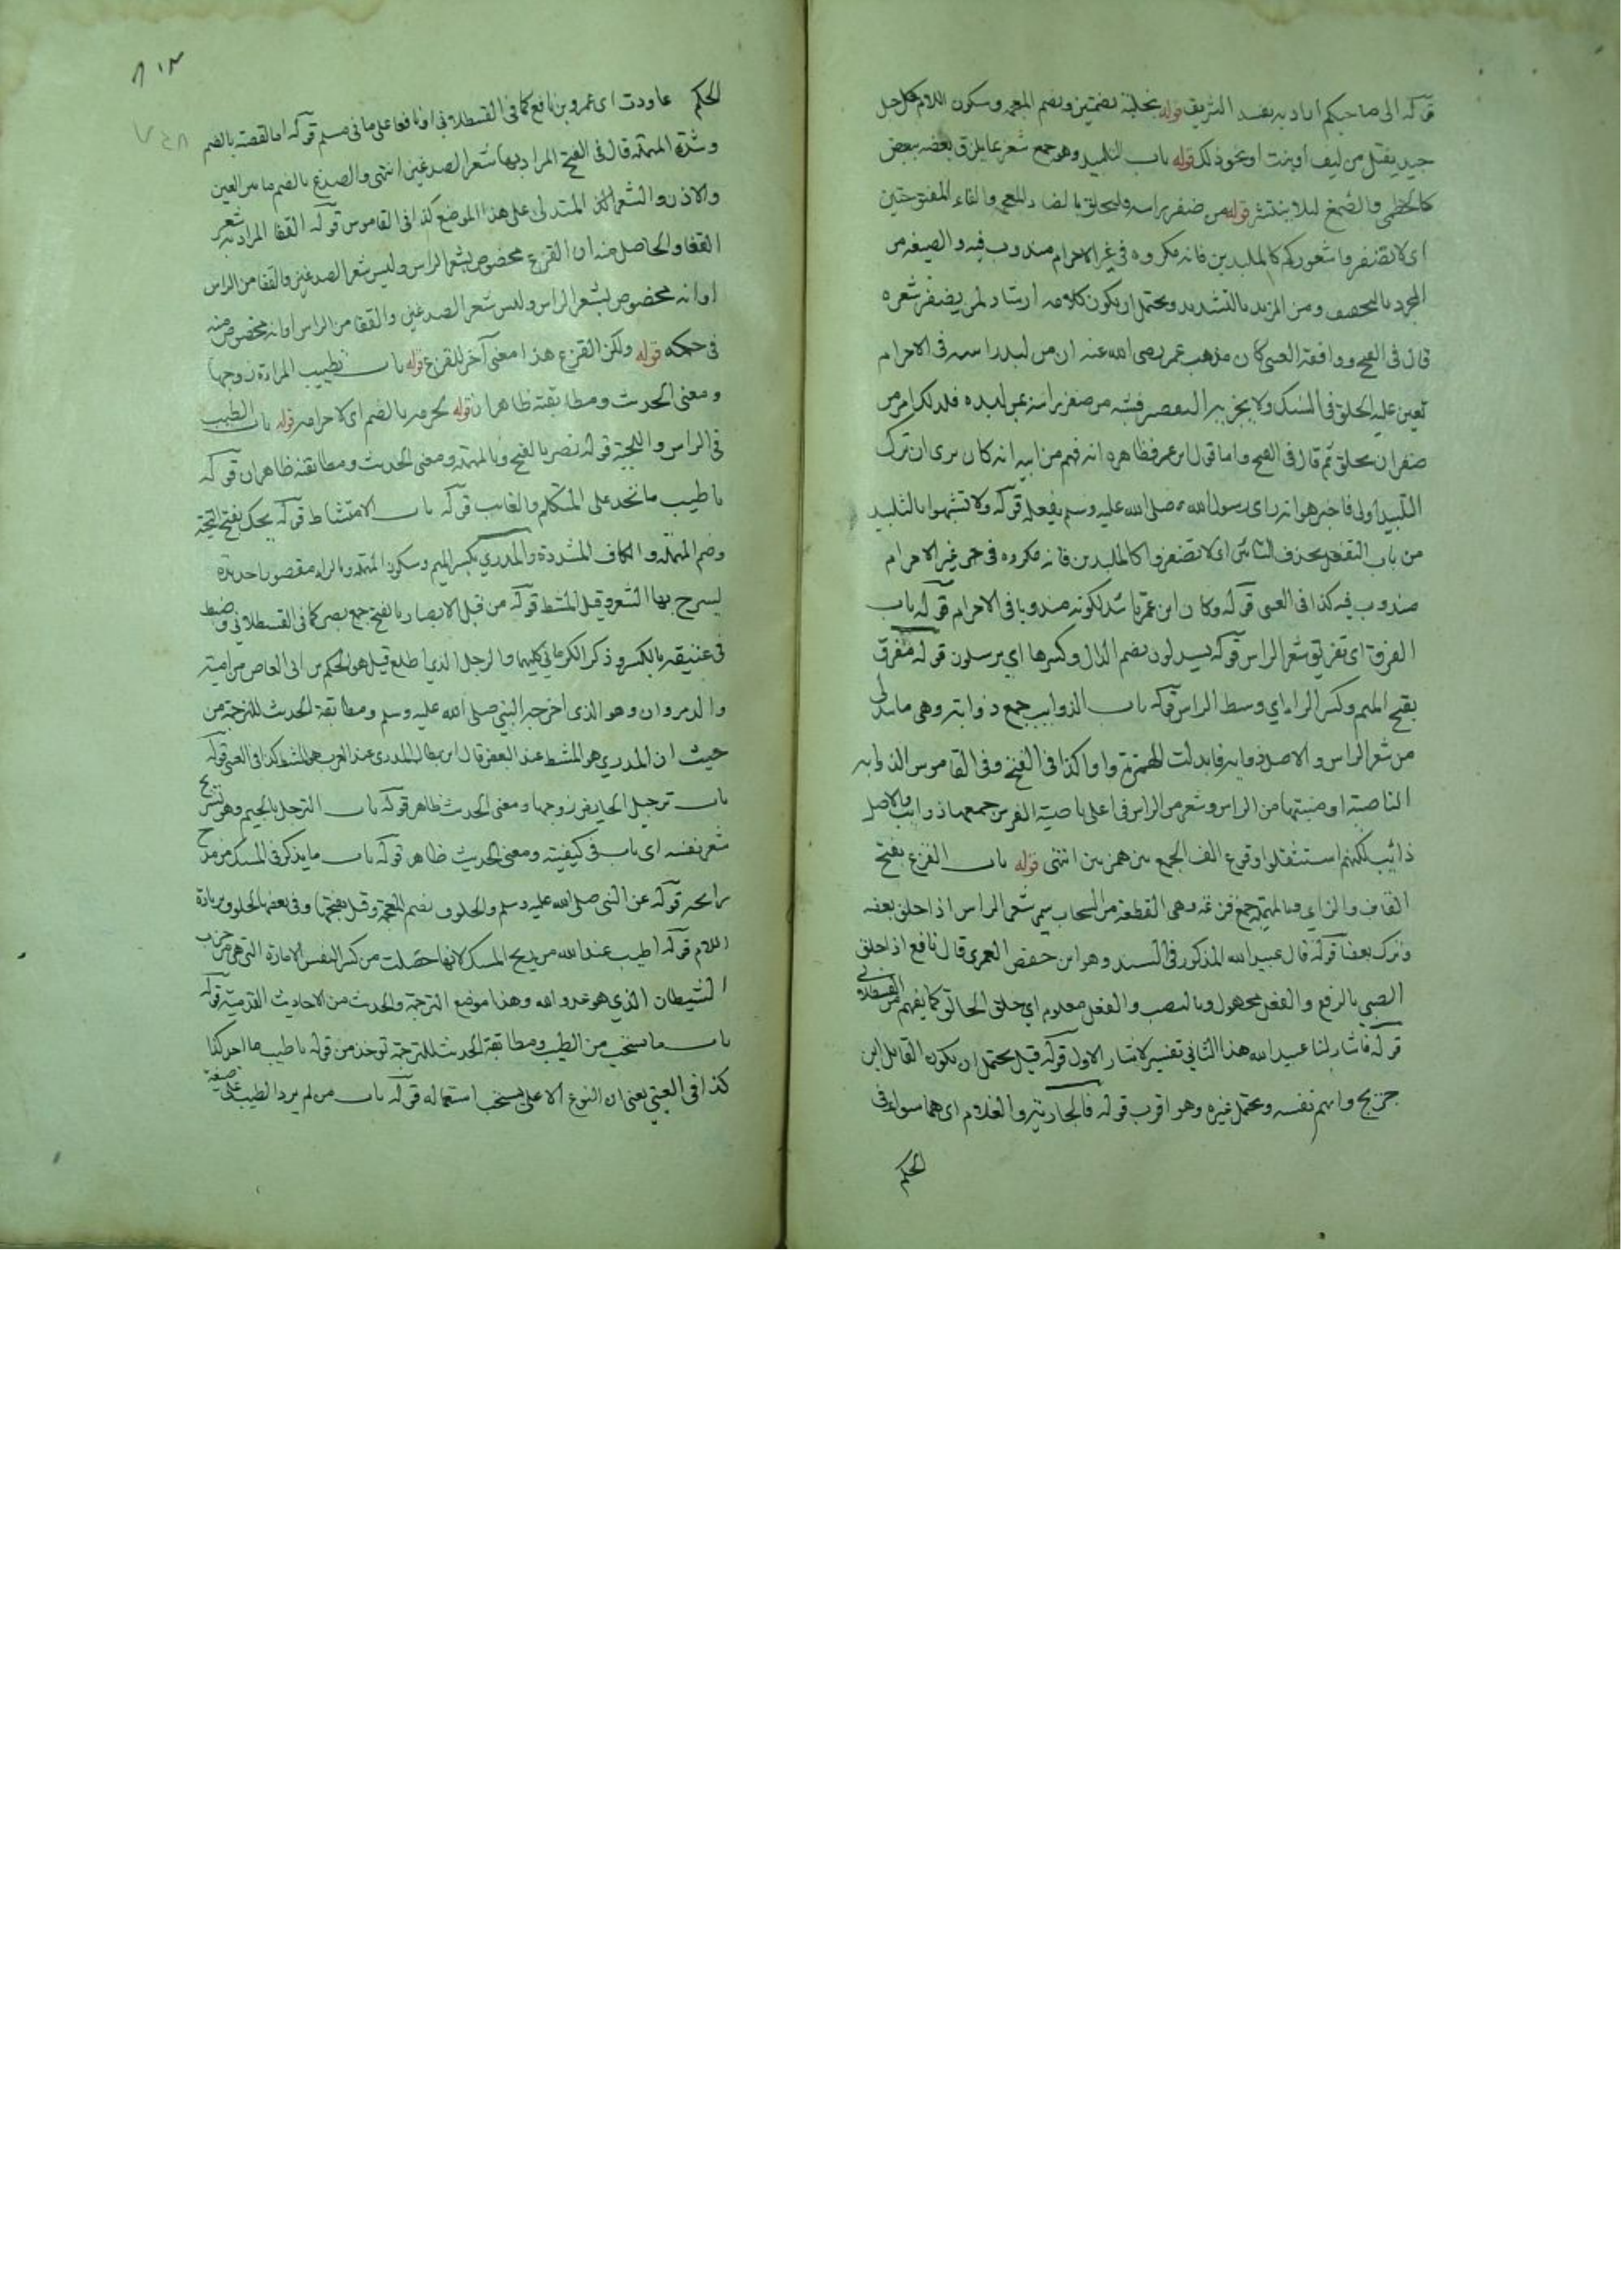 قوله الى صاحبكم اراد به نفسه الشريفة قوله بخلبة بضمتين وبضم المعجمة وسكون اللام حبل
جيد يفتل من ليف او بنت او نحو ذلك قوله باب التلبيد وهو جمع شعر بما يلزق بعضه ببعض
كالخطمي والصمغ ليلا ينتشر قوله من ضفر راسه فليحلق بالضاد المعجمة والفاء المفتوحتين
اي لا تضفروا شعوركم كالملبدين فانه مكروه في غير الاحرام مندوب فيه والصيغة من
المجرد بالتخفيف ومن المزيد بالتشديد ويحتمل ان يكون كلامه ارشاد لمن يضفر شعره
قال في الفتح ووافقه العيني كان مذهب عمر رضى الله عنه ان من لبد راسه في الاحرام
تعين عليه الحلق في النسك ولا يجزيه التقصير فشبه من ضفر راسه بمن لبده فلذلك امر من
ضفر ان يحلق ثم قال في الفتح واما قول ابن عمر فظاهره انه فهم من ابيه انه كان يرى ان ترك
التلبيد اولى فاخبر هو انه راى رسول الله صلى الله عليه وسلم يفعله قوله ولا تشبهوا بالتلبيد
من باب التفعل بحذف التائين اي لا تضفروا كالملبدين فانه مكروه في حق غير الاحرام
مندوب فيه كذا في العيني قوله وكان ابن عمر لكونه مندوبا في الاحرام قوله باب
الفرق اي تفريق شعر الراس قوله يسدلون بضم الدال وكسرها اي يرسلون قوله مفرق
بفتح الميم وكسر الراء اي وسط الراس قوله باب الذوايب جمع ذوابة وهي ما يدلى
من شعر الراس والاصل ذوايب فابدلت الهمزة واوا كذا في الفتح وفي القاموس الذوابه
الناصية او منبتها من الراس وشعر من الراس في اعلى ناصية الفرس جمعها ذوايب والاصل
ذائيب لكنهم استثقلوا وقوع الف الجمع بين همزتين انتهى قوله باب القزع بفتح
القاف والزاي وبالمهملة جمع قزعه وهي القطعة من السحاب سمي شعر الراس اذا حلق بعضه
وترك بعضا قوله قال عبيد الله المذكور في السند وهو ابن حفص العمري قال نافع اذا حلق
الصبي بالرفع والفعل مجهول وبالنصب والفعل معلوم اي حلق الحالق كما يفهم من القسطلاني
قوله فاشار لنا عبيد الله هذا الثاني تفسير لاشار الاول قوله قيل يحتمل ان يكون القايل ابن
جريج وابهم نفسه ويحتمل غيره وهو اقرب قوله فالجارية والغلام اي هما سواء في
الحكم
الحكم عاودت اي عمرو بن نافع كما في القسطلاني او نافعا على ما في مسلم قوله اما القصة بالضم
وشدة المهملة قال في الفتح المراد بها شعر الصدغين انتهى والصدغ بالضم ما بين العين
والاذن والشعر المتدلى على هذا الموضع كذا في القاموس قوله القفا المراد به شعر
القفا والحاصل منه ان القزع مخصوص بشعر الراس وليس شعر الصدغين والقفا من الراس
او انه مخصوص بشعر الراس وليس شعر الصدغين والقفا من الراس او انه مخصوص منه
في حكمه قوله ولكن القزع هذا معنى آخر للقزع قوله باب تطييب المراة زوجها
ومعنى الحديث ومطابقته ظاهران قوله لحرمه بالضم اي لاحرامه قوله باب الطيب
في الراس واللحية قوله نصر بالفتح وبالمهملة ومعنى الحديث ومطابقته ظاهران قوله
باطيب ما نجد على المتكلم والغايب قوله باب الامتشاط قوله يحك بفتح التحتية
وضم المهملة والكاف المشددة والمدري بكسر الميم وسكون المهملة وبالراء مقصورا حديدة
يسرح بها الشعر وقيل المشط قوله من قبل الابصار بالفتح جمع بصر كما في القسطلاني وضبط
بالكسر وذكر الكرماني كليهما والرجل الذي اطلع قيل هو الحكم بن ابي العاص بن امية
والد مروان وهو الذي اخرجه النبي صلى الله عليه وسلم ومطابقة الحديث للترجمة من
حيث ان المدري هو المشط عند البعض قال ابن بطال المدرى عند العرب هو المشط كذا في العيني قوله
باب ترجيل الحايض زوجها ومعنى الحديث ظاهر قوله باب الترجل بالجيم وهو تسريح
شعر نفسه اي باب في كيفيته ومعنى الحديث ظاهر قوله باب ما يذكر في المسك
رايحه قوله عن النبي صلى الله عليه وسلم والخلوف بضم المعجمة وقيل بفتحها وفي بعضها لخلوف بزيادة
اللام قوله اطيب عند الله من ريح المسك لانها حصلت من كسر النفس الامارة التي هي من حزب
الشيطان الذي هو عدو الله وهذا موضع الترجمة والحديث من الاحاديث القدسية قوله
باب ما يستحب من الطيب ومطابقة الحديث للترجمة توخذ من قوله باطيب ما اجد
كذا في العيني يعني ان النوع الاعلى يستحب استعماله قوله باب من لم يرد الطيب على صيغة